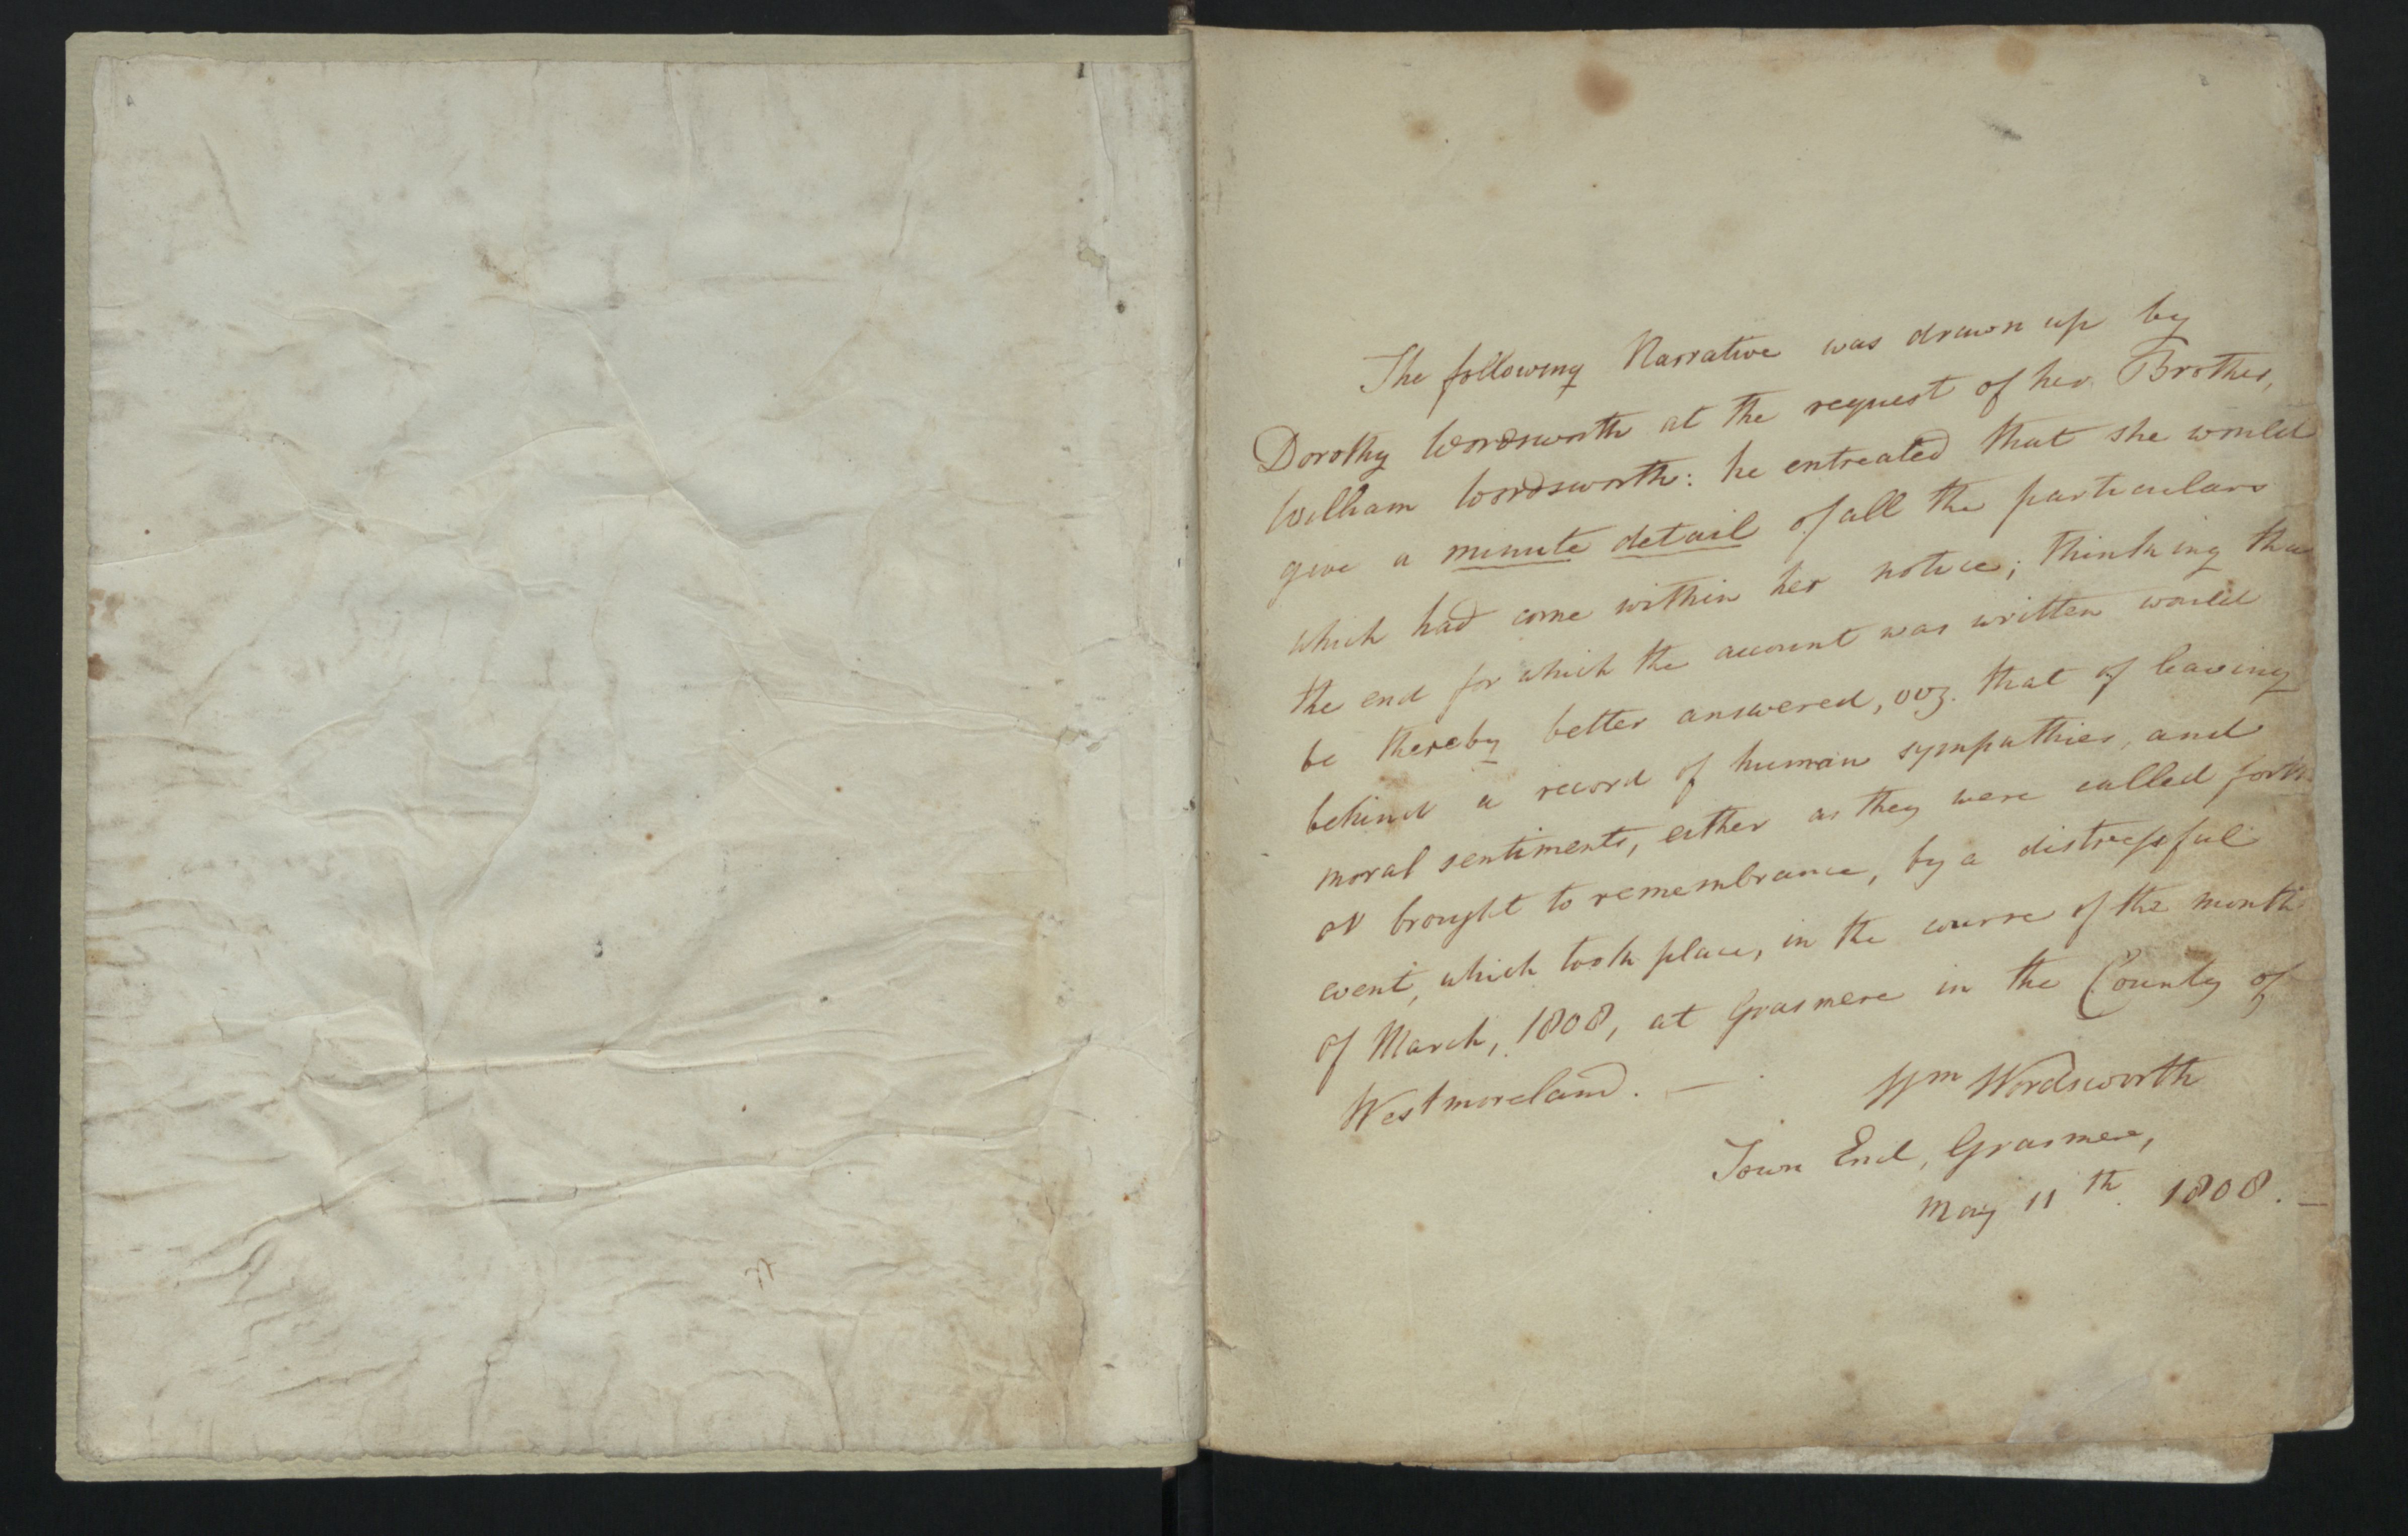 The following Narrative was drawn up by
Dorothy Wordsworth at the request of her Brother,
William Wordsworth: he entreated that she would
give a minute detail of all the particulars
which had come within her notice; thinking tha
the end for which the account was written would
be thereby better answered, viz. that of leaving
behind a record of human sympathies, and
moral sentiments, either as they were called forth
or brought to remembrance, by a distressful
event, which took place, in the course of the month
of March, 1808, at Grasmere in the County of
Westmoreland. —
Wm Wordsworth
Town End, Grasmere,
May 11th. 1808. —